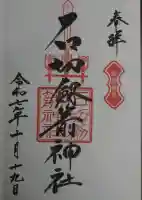 奉拝
石切劔箭神社
令和七年十月十九日